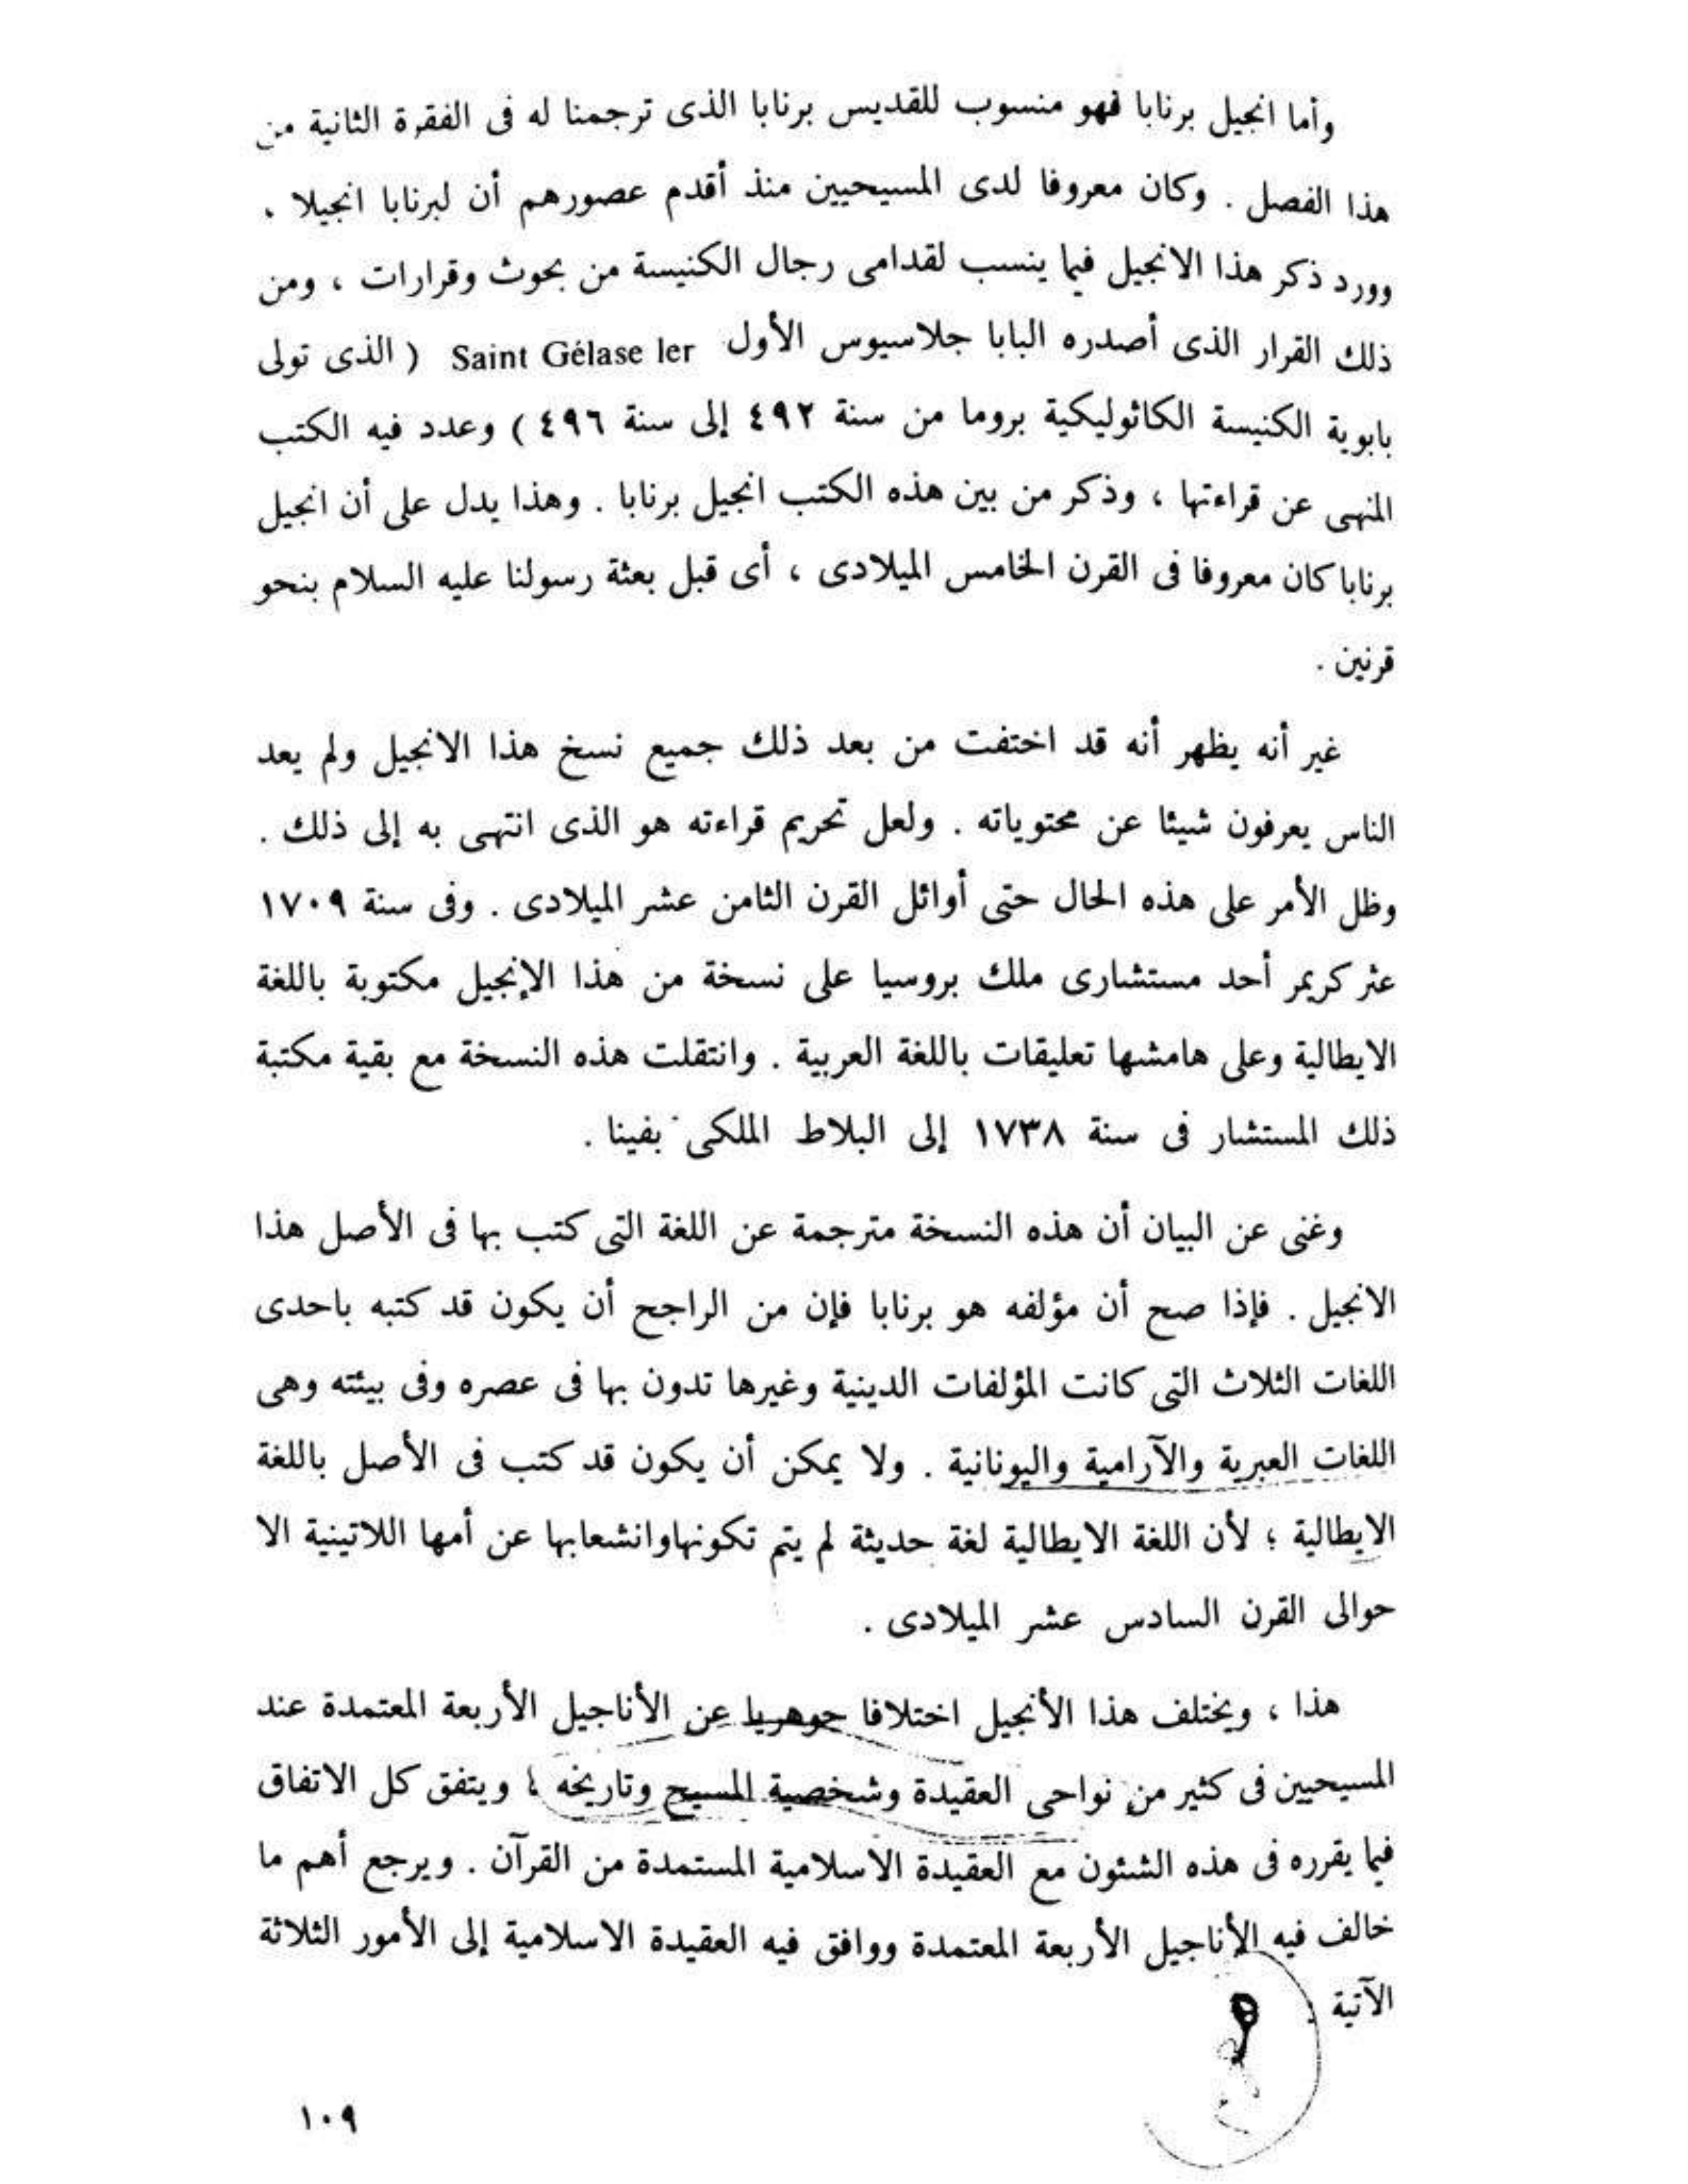 وأما انجيل برنابا فهو منسوب للقديس برنابا الذى ترجمنا له فى الفقرة الثانية من
هذا الفصل . وكان معروفا لدى المسيحيين منذ أقدم عصورهم أن لبرنابا انجيلا ،
وورد ذكر هذا الانجيل فيما ينسب لقدامى رجال الكنيسة من بحوث وقرارات ، ومن
ذلك القرار الذى أصدره البابا جلاسيوس الأول Saint Gélase Ier ( الذى تولى
بابوية الكنيسة الكاثوليكية بروما من سنة ٤٩٢ إلى سنة ٤٩٦ ) وعدد فيه الكتب
المنهى عن قراءتها ، وذكر من بين هذه الكتب انجيل برنابا . وهذا يدل على أن انجيل
برنابا كان معروفا فى القرن الخامس الميلادى ، أى قبل بعثة رسولنا عليه السلام بنحو
قرنين .
غير أنه يظهر أنه قد اختفت من بعد ذلك جميع نسخ هذا الانجيل ولم يعد
الناس يعرفون شيئا عن محتوياته . ولعل تحريم قراءته هو الذى انتهى به إلى ذلك .
وظل الأمر على هذه الحال حتى أوائل القرن الثامن عشر الميلادى . وفى سنة ١٧٠٩
عثر كريمر أحد مستشارى ملك بروسيا على نسخة من هذا الإنجيل مكتوبة باللغة
الايطالية وعلى هامشها تعليقات باللغة العربية . وانتقلت هذه النسخة مع بقية مكتبة
ذلك المستشار فى سنة ١٧٣٨ إلى البلاط الملكى بفينا .
وغنى عن البيان أن هذه النسخة مترجمة عن اللغة التى كتب بها فى الأصل هذا
الانجيل . فإذا صح أن مؤلفه هو برنابا فإن من الراجح أن يكون قد كتبه باحدى
اللغات الثلاث التى كانت المؤلفات الدينية وغيرها تدون بها فى عصره وفى بيئته وهى
اللغات العبرية والآرامية واليونانية . ولا يمكن أن يكون قد كتب فى الأصل باللغة
الايطالية ؛ لأن اللغة الايطالية لغة حديثة لم يتم تكونهاوانشعابها عن أمها اللاتينية الا
حوالى القرن السادس عشر الميلادى .
هذا ، ويختلف هذا الأنجيل اختلافا جوهريا عن الأناجيل الأربعة المعتمدة عند
المسيحيين فى كثير من نواحى العقيدة وشخصية المسيح وتاريخه ، ويتفق كل الاتفاق
فيما يقرره فى هذه الشئون مع العقيدة الاسلامية المستمدة من القرآن . ويرجع أهم ما
خالف فيه الأناجيل الأربعة المعتمدة ووافق فيه العقيدة الاسلامية إلى الأمور الثلاثة
الآتية :
١٠٩